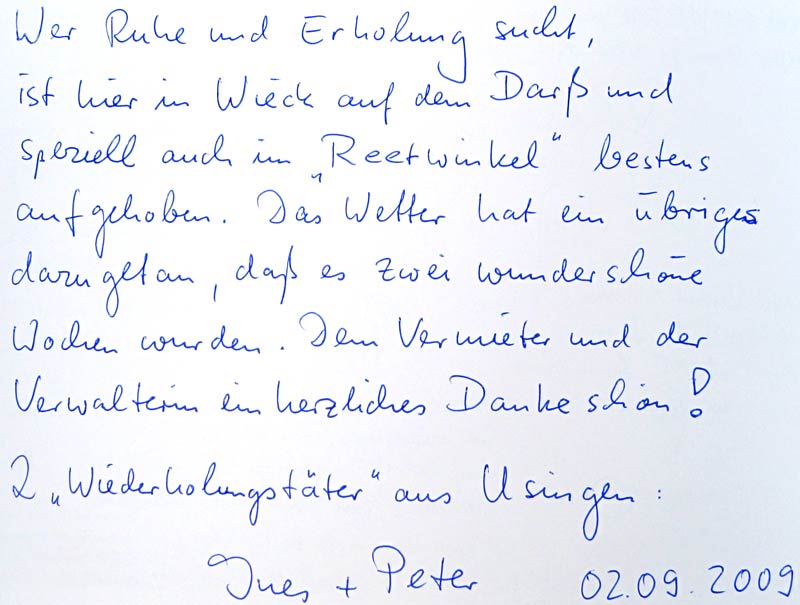 Wer Ruhe und Erholung sucht,
ist hier in Wieck auf dem Darß und
speziell auch im „Reetwinkel“ bestens
aufgehoben. Das Wetter hat ein übriges
dazugetan, daß es zwei wunderschöne
Wochen wurden. Dem Vermieter und der
Verwalterin ein herzliches Dankeschön!
2 „Wiederholungstäter“ aus Usingen:
Ines + Peter 02.09.2009